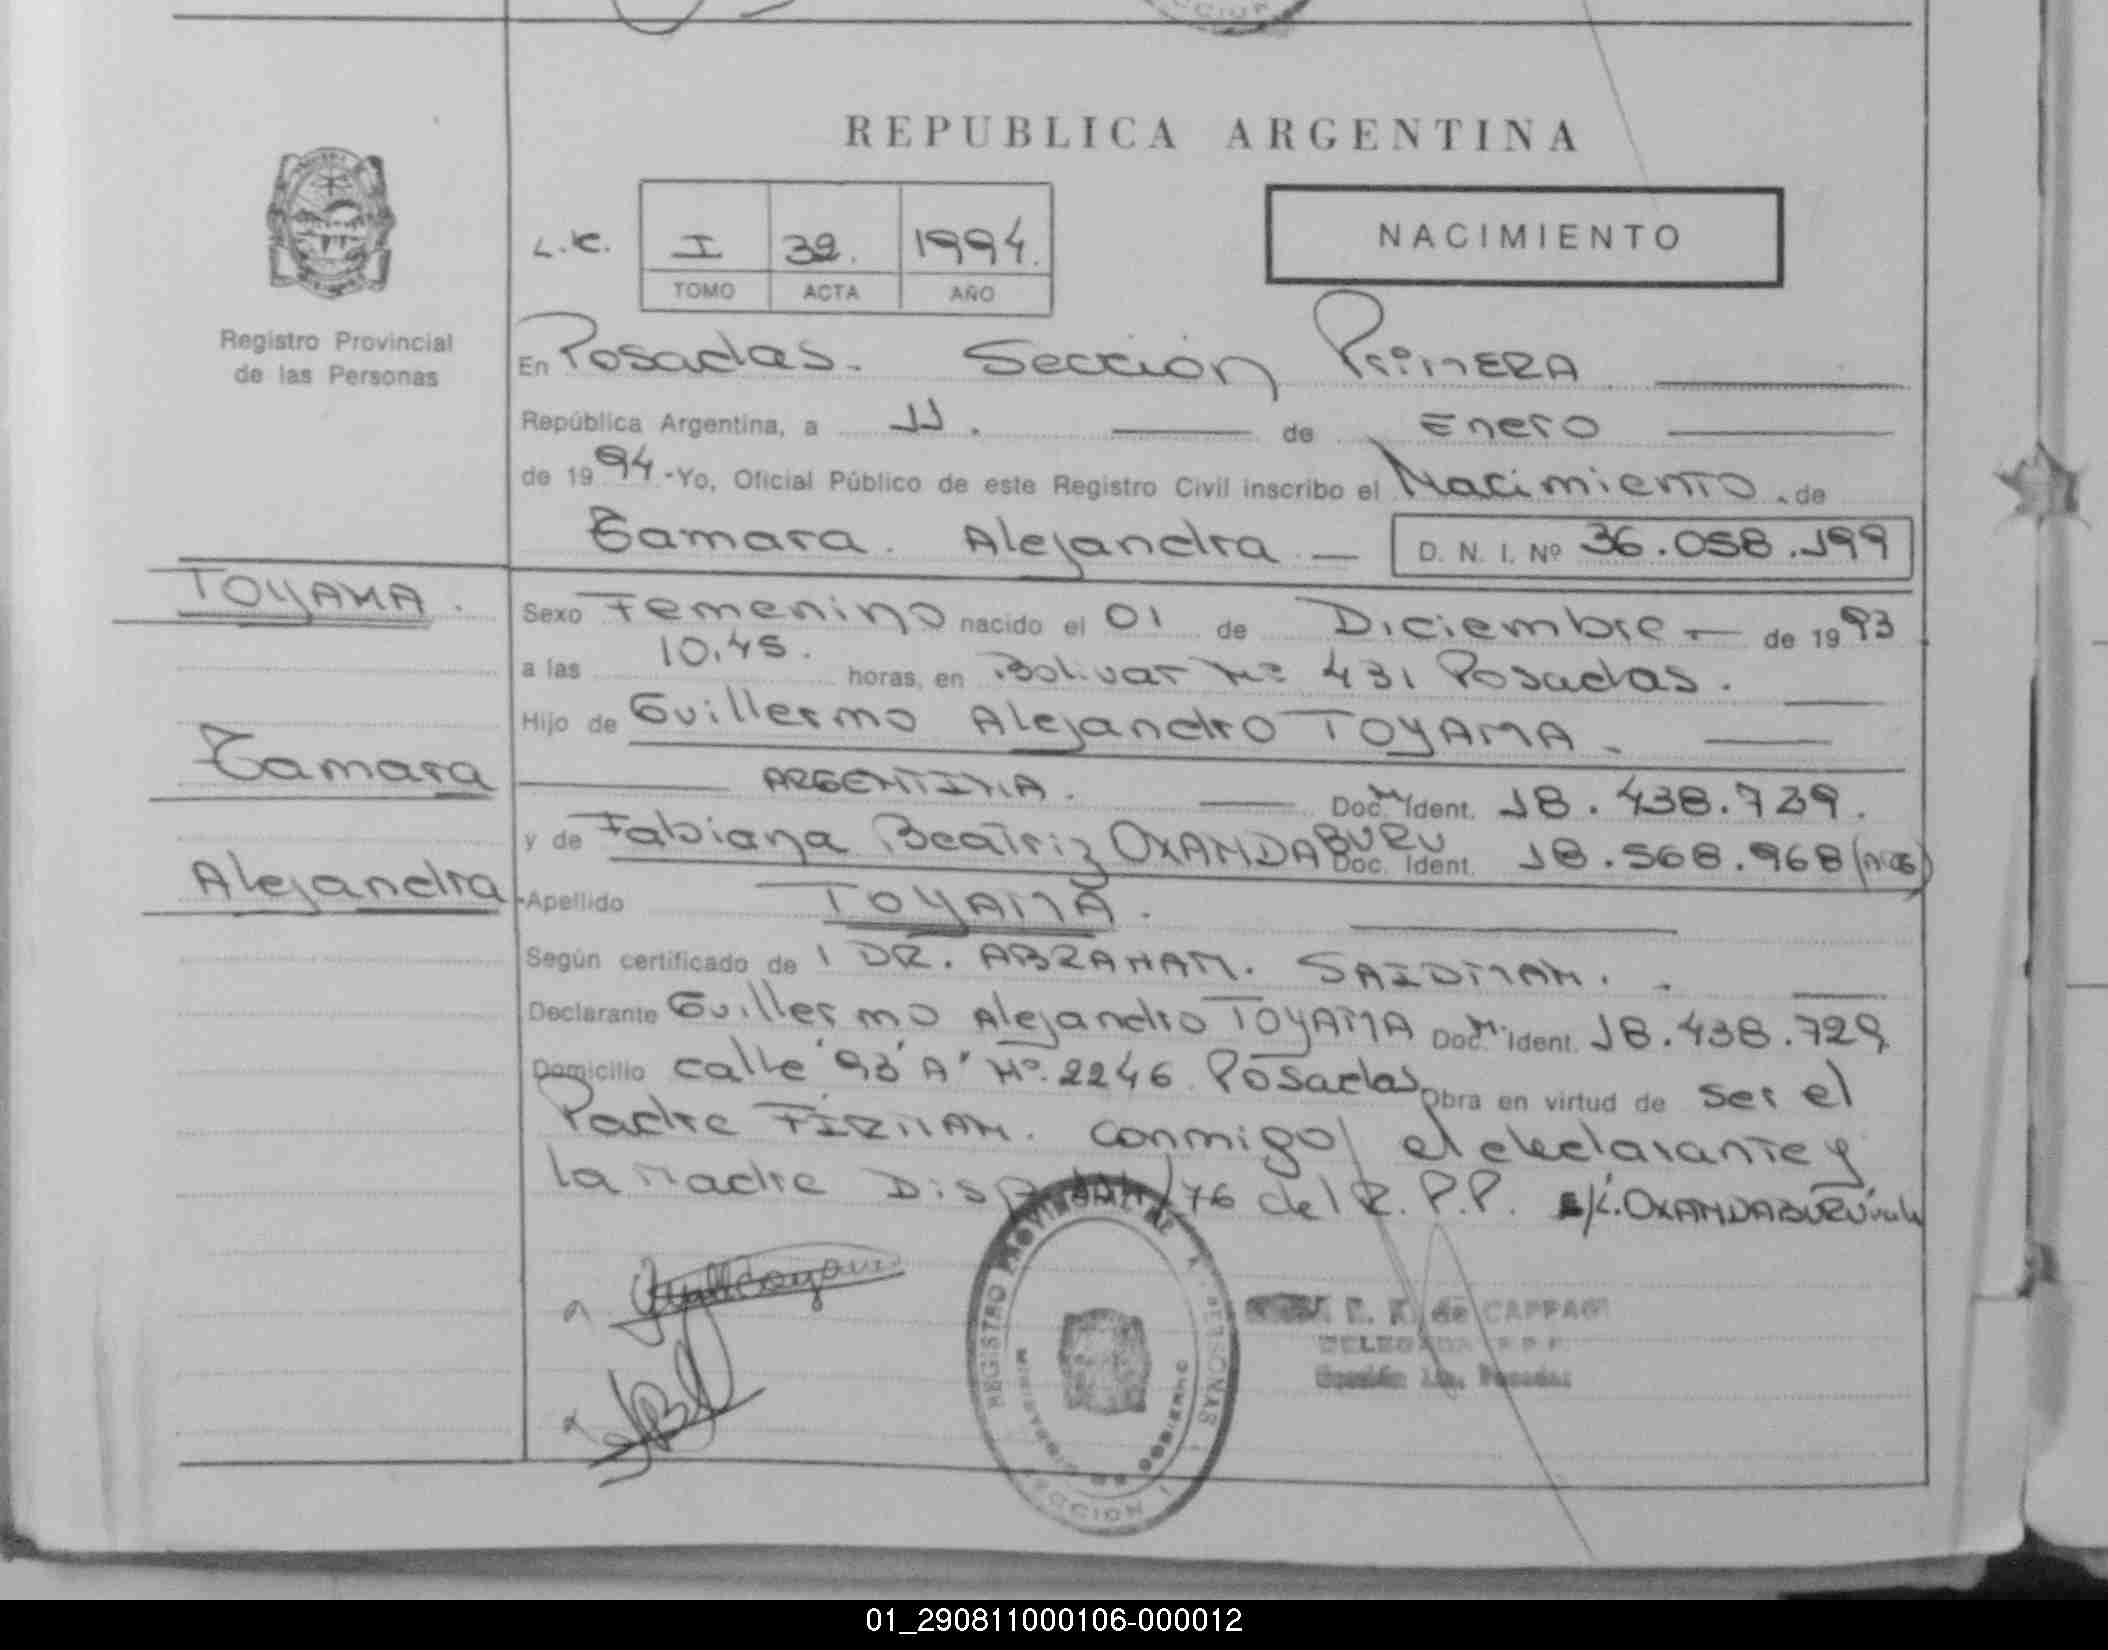 REPUBLICA ARGENTINA
NACIMIENTO
L.K. I 32. 1994.
TOMO ACTA AÑO
Registro Provincial
de las Personas
En Posadas. Sección Primera
República Argentina, a 11. de Enero
de 1994.-Yo, Oficial Público de este Registro Civil inscribo el Nacimiento. de
Tamara. Alejandra - D. N. I. Nº 36.058.199
TOYAMA.
Sexo Femenino nacido el 01 de Diciembre - de 1993
a las 10.45. horas, en Bolivar Nº 431 Posadas.
Hijo de Guillermo Alejandro TOYAMA.
Tamara
ARGENTINA. Doc. Ident. 18.438.729.
y de Fabiana Beatriz OXANDABURU Doc. Ident. 18.568.968 (ARG)
Alejandra
Apellido TOYAMA.
Según certificado de DR. ABRAHAM. SAIDMAN.
Declarante Guillermo Alejandro TOYAMA Doc. Ident. 18.438.729
Domicilio calle '93' A' Nº. 2246 Posadas Obra en virtud de ser el
Padre FIRMAN. conmigo el declarante y
la Madre Disp. /76 del R.P.P. OXANDABURU vale
REGISTRO PROVINCIAL DE LAS PERSONAS
MINISTERIO DE GOBIERNO
SECCION I
de CAPPAGI
DELEGADA R.P.P.
Sección 1ra. Posadas
01_290811000106-000012